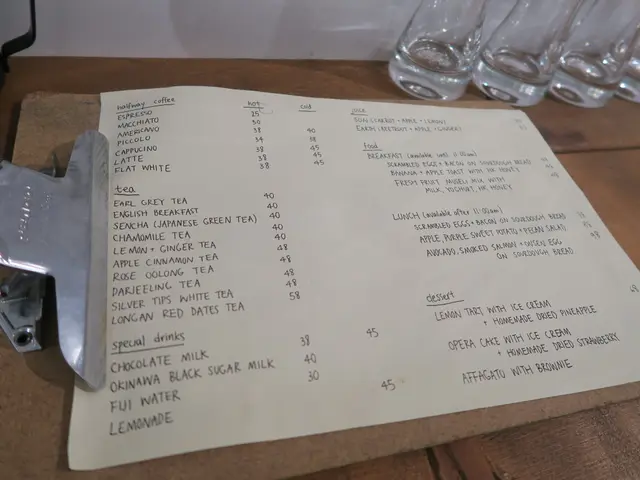 halfway coffee hot cold
ESPRESSO 25
MACCHIATO 30
AMERICANO 38 40
PICCOLO 34 38
CAPPUCINO 38 45
LATTE 38 45
FLAT WHITE 38 45
tea
EARL GREY TEA 40
ENGLISH BREAKFAST 40
SENCHA (JAPANESE GREEN TEA) 40
CHAMOMILE TEA 40
LEMON + GINGER TEA 48
APPLE CINNAMON TEA 48
ROSE OOLONG TEA 48
DARJEELING TEA 48
SILVER TIPS WHITE TEA 58
LONGAN RED DATES TEA
special drinks
CHOCOLATE MILK 38 45
OKINAWA BLACK SUGAR MILK 40
FIJI WATER 30
LEMONADE 45
juice
SUN (CARROT + APPLE + LEMON)
EARTH (BEETROOT + APPLE + GINGER)
food
BREAKFAST (available until 11:00am)
SCRAMBLED EGGS + BACON ON SOURDOUGH BREAD
BANANA + APPLE TOAST WITH HK HONEY
FRESH FRUIT MUSELI MIX WITH
MILK, YOGHURT, HK HONEY
LUNCH (available after 11:00am)
SCRAMBLED EGGS + BACON ON SOURDOUGH BREAD
APPLE, PURPLE SWEET POTATO + PECAN SALAD
AVOKADO, SMOKED SALMON + ONSEN EGG
ON SOURDOUGH BREAD
dessert
LEMON TART WITH ICE CREAM
+ HOMEMADE DRIED PINEAPPLE
OPERA CAKE WITH ICE CREAM
+ HOMEMADE DRIED STRAWBERRY
AFFAGATO WITH BROWNIE